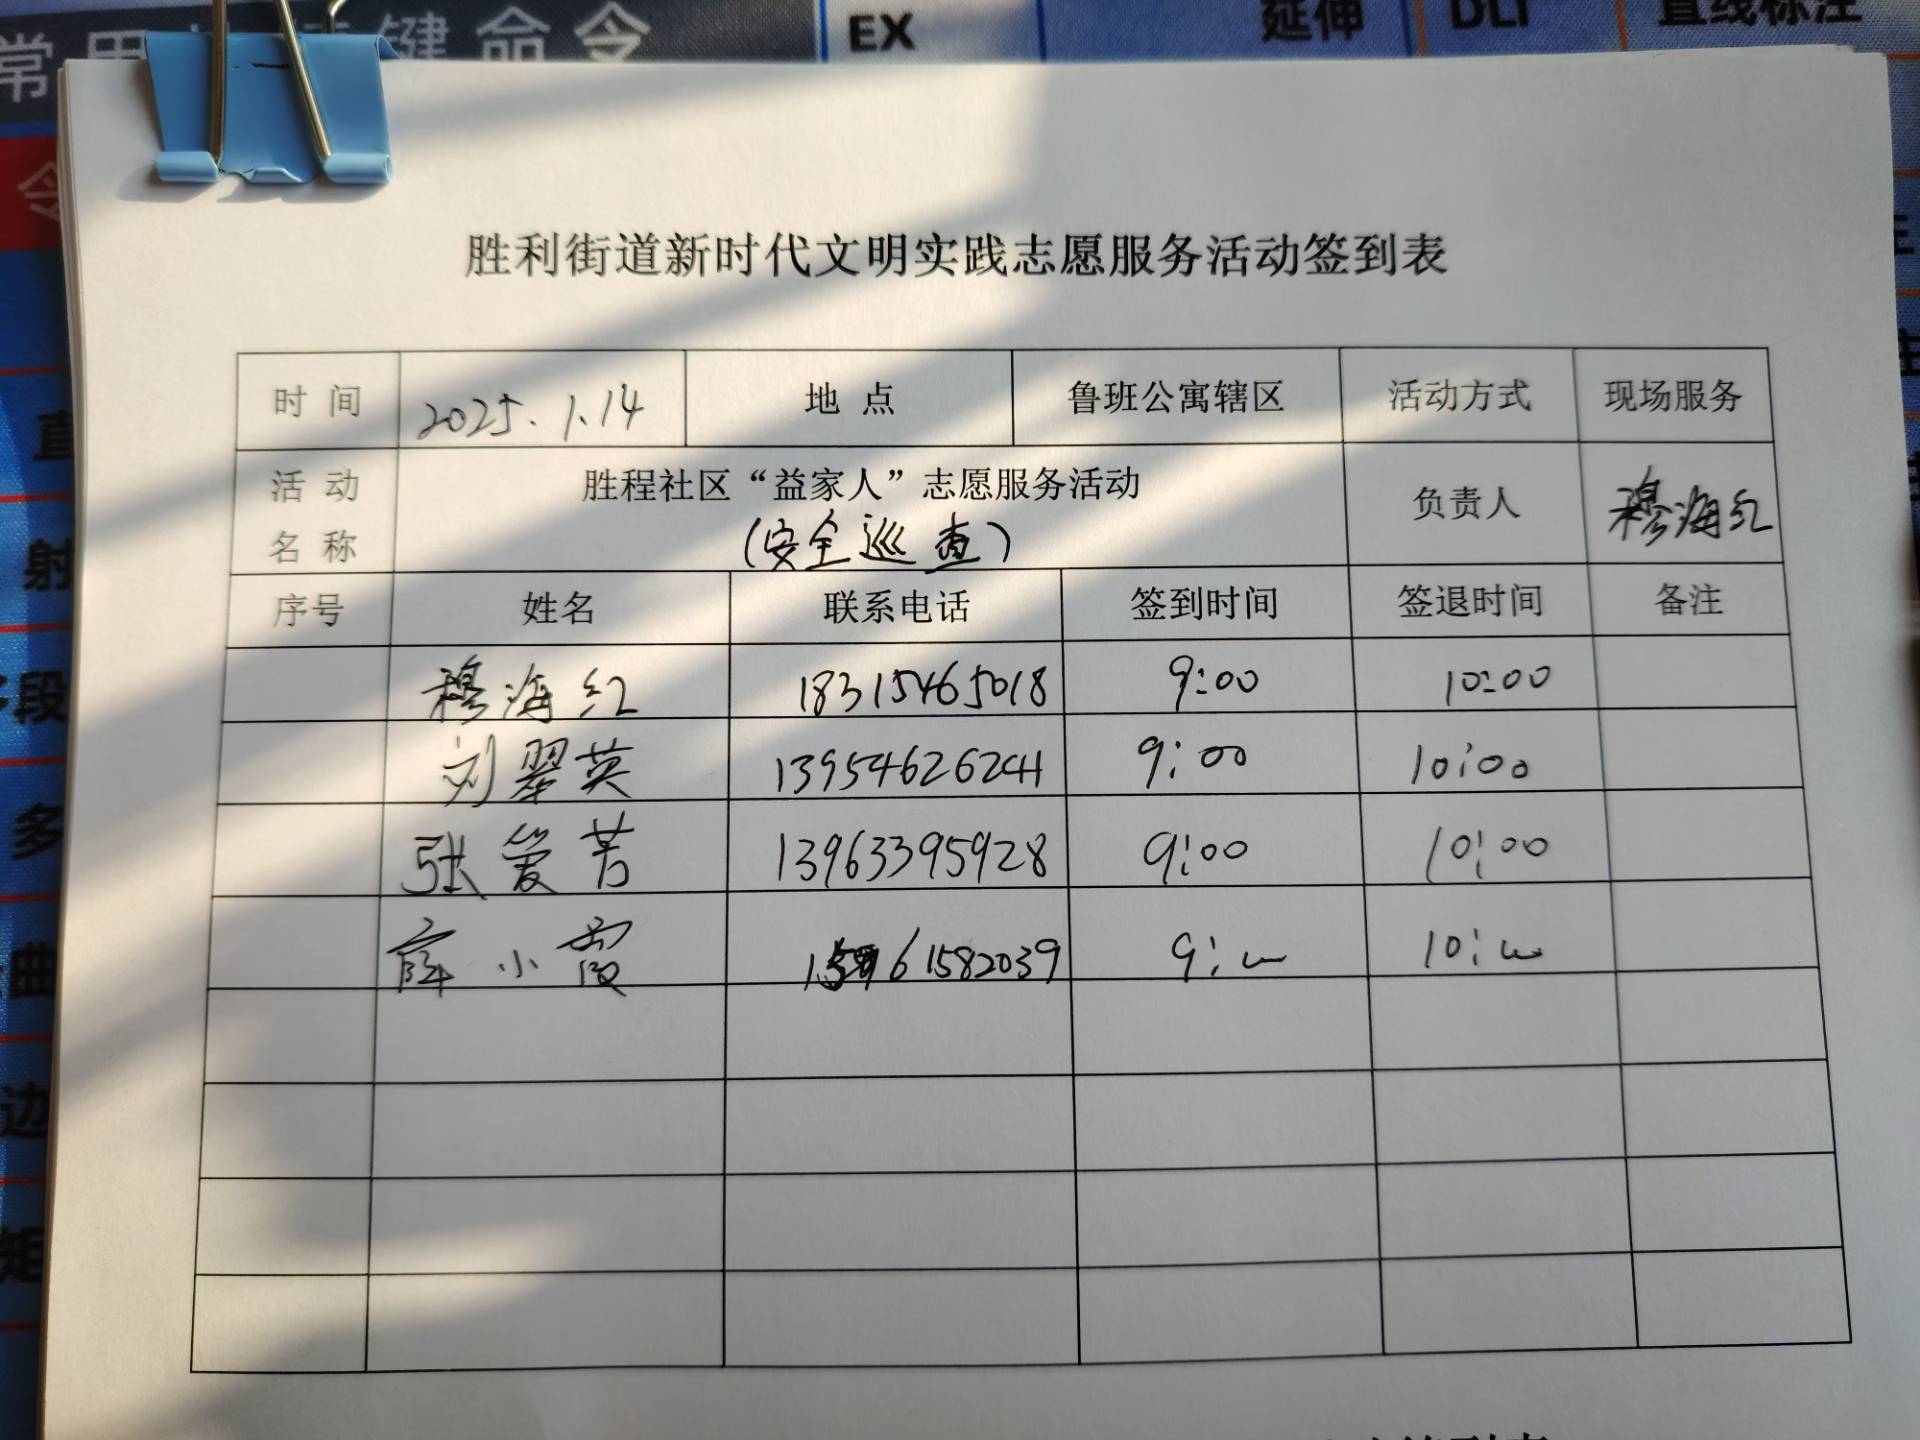 常用快捷键命令
EX
延伸
DLI
直线标注
胜利街道新时代文明实践志愿服务活动签到表
时间 2025.1.14 地点 鲁班公寓辖区 活动方式 现场服务
活动名称 胜程社区“益家人”志愿服务活动 负责人 穆海红
(安全巡查)
序号 姓名 联系电话 签到时间 签退时间 备注
穆海红 18315465018 9:00 10:00
刘翠英 13954626241 9:00 10:00
张爱芳 13963395928 9:00 10:00
薛小霞 9:00 10:00